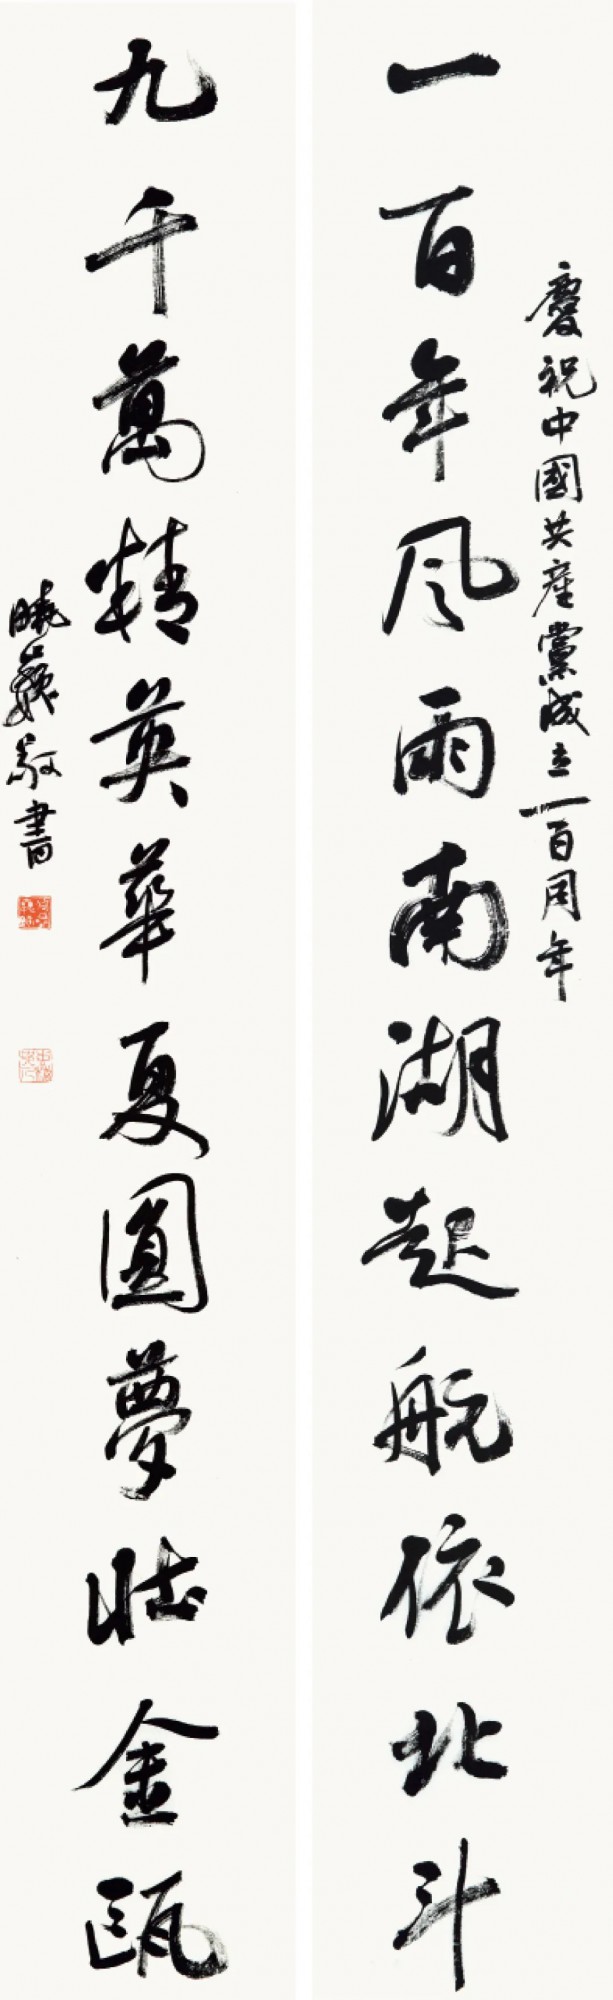 慶祝中國共産黨成立一百周年
一百年风雨南湖起航依北斗
九千萬精英華夏圓夢壯金甌
敬書